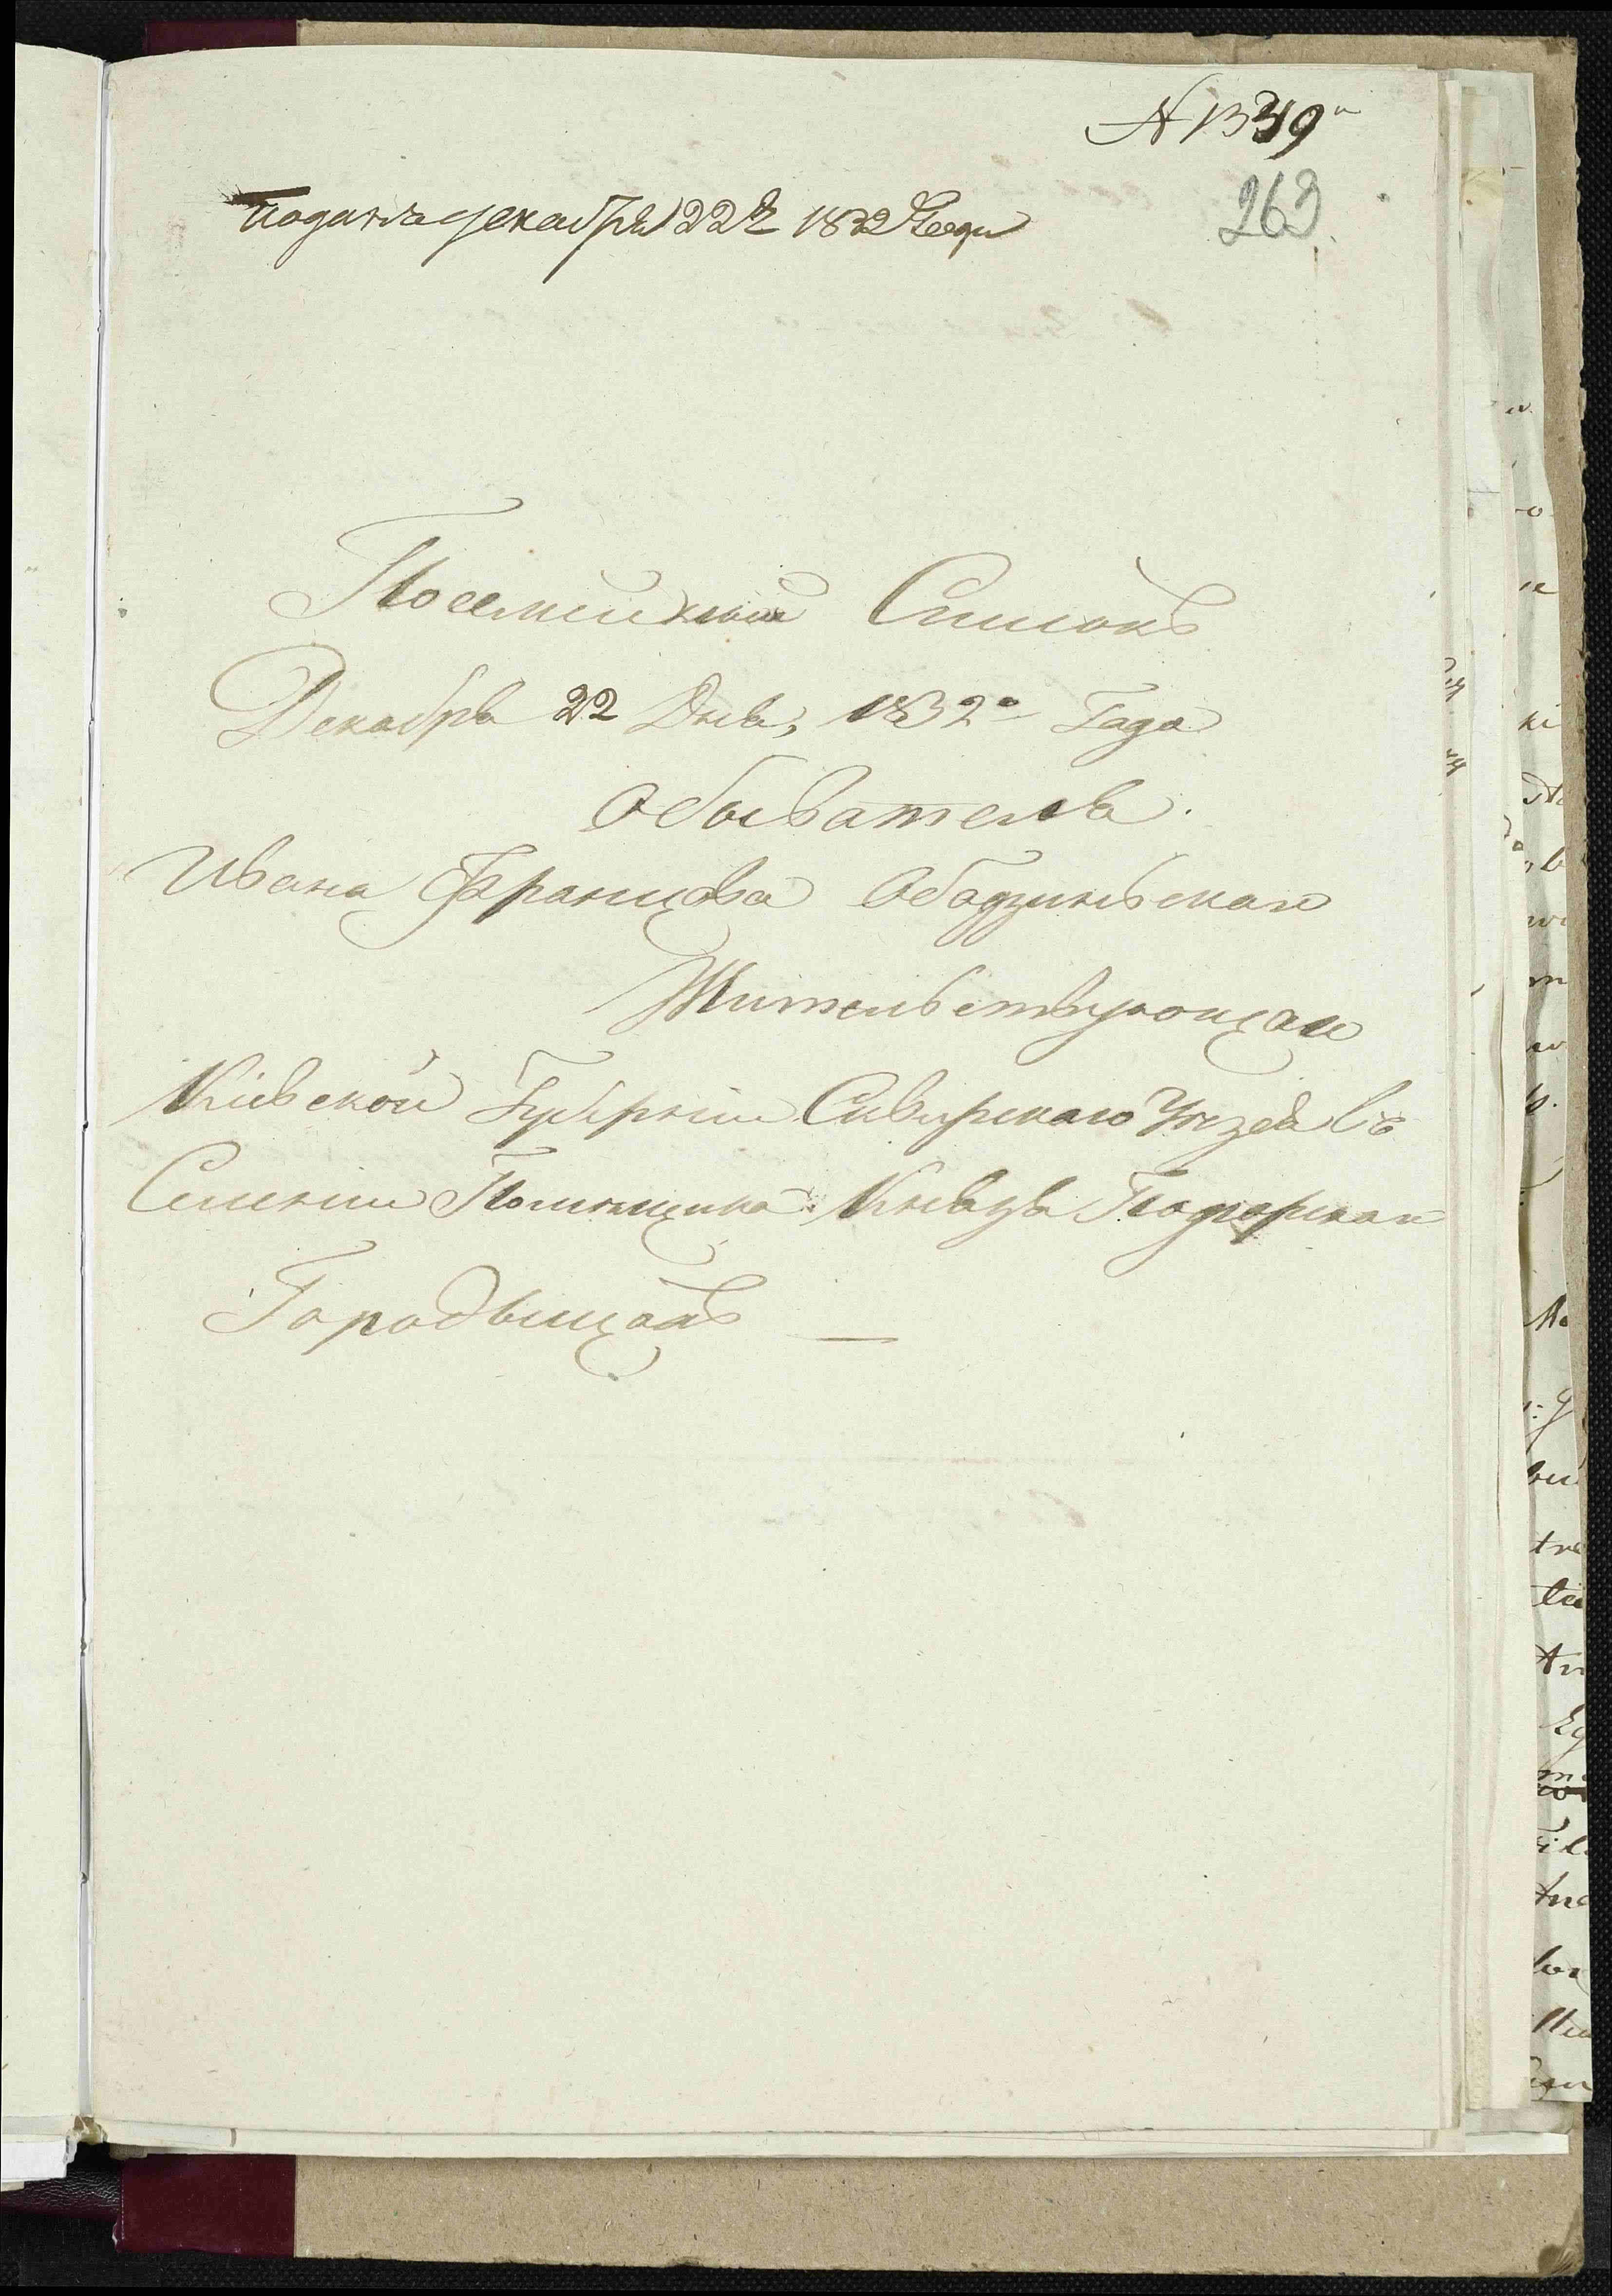 N 1339
263
подана декабря 22 1832 Года
Посемейный Списокъ
Декабря 22 Дня, 1832го Года
Обывателя.
Ивана Францова Обадзинскаго
Жительствующаго
Кіевской Губерніи Сквирскаго Уезда въ
Селеніи Помещика Князя
Городыщахъ —